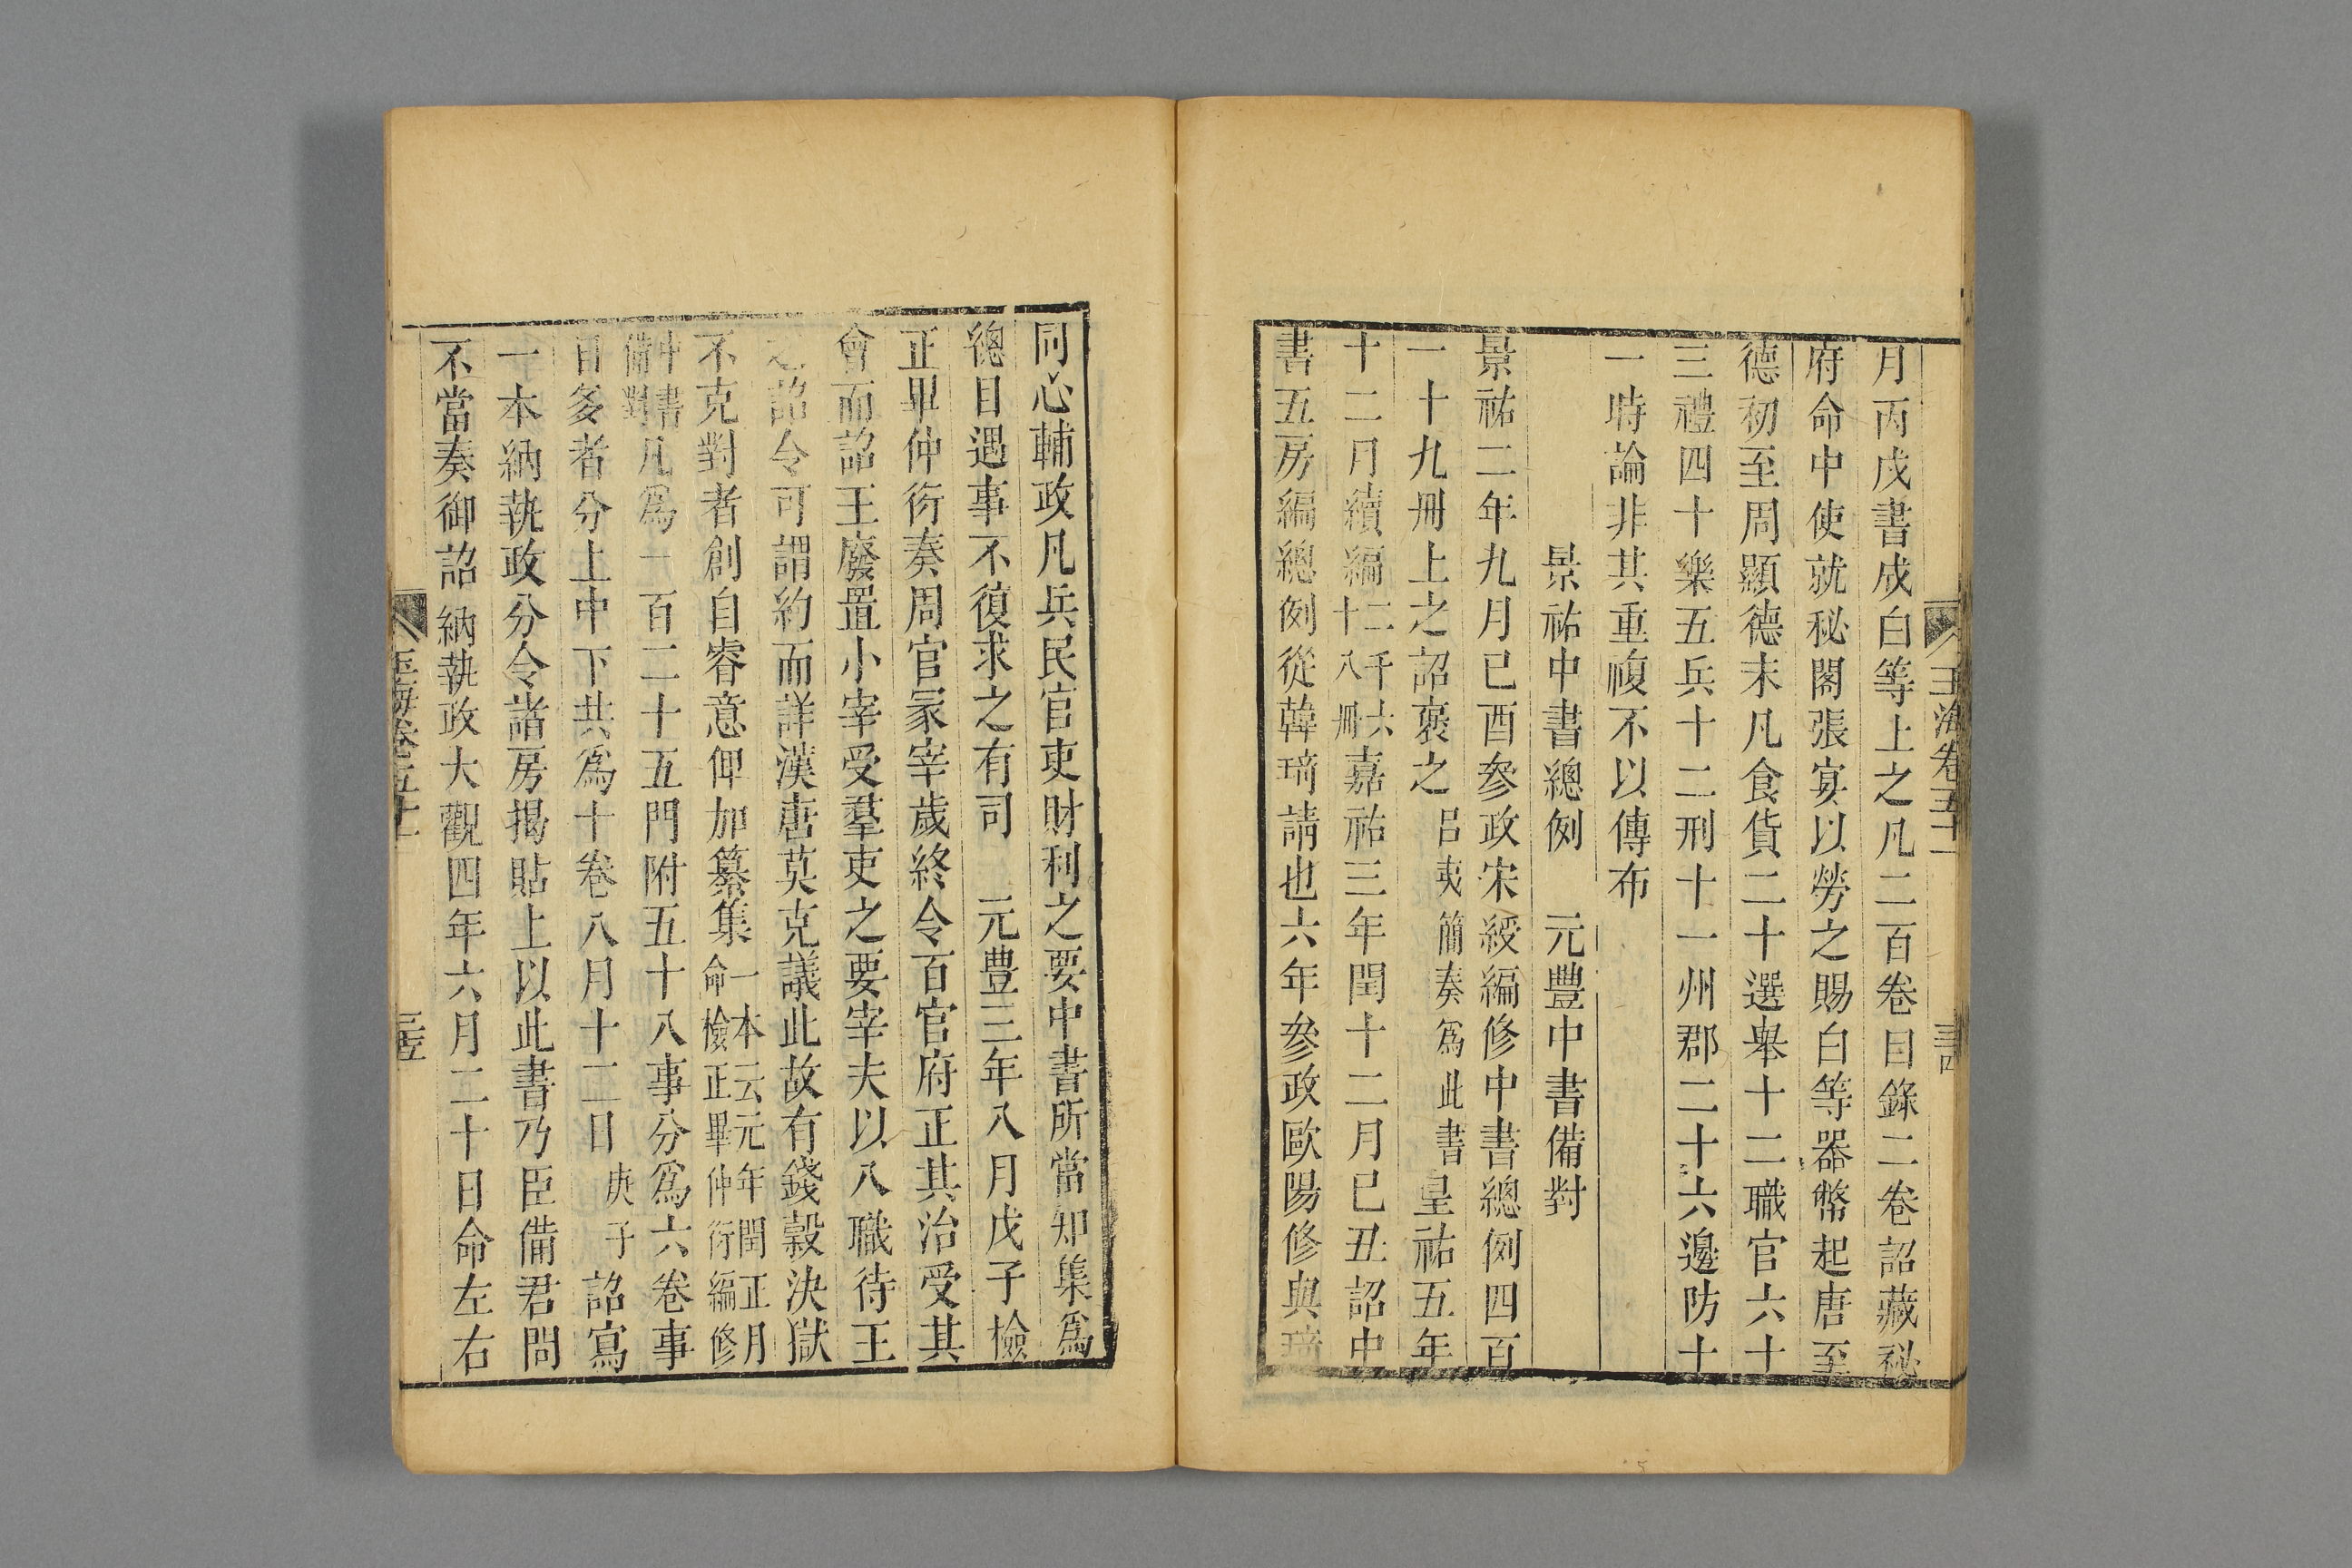 玉海卷五十一
月丙戌書成白等上之凡二百卷目錄二卷詔藏祕
府命中使就秘閣張宴以勞之賜白等器幣起唐至
德初至周顯德末凡食貨二十選舉十二職官六十
三禮四十樂五兵十二刑十一州郡二十六邊防十
一時論非其重複不以傳布
景祐中書總例　元豐中書備對
景祐二年九月己酉參政宋綬編修中書總例四百
一十九冊上之詔褒之呂夷簡奏爲此書皇祐五年
十二月續編二千六十八冊嘉祐三年閏十二月己丑詔中
書五房編總例從韓琦請也六年參政歐陽修與琦
同心輔政凡兵民官吏財利之要中書所當知集爲
總目遇事不復求之有司　元豊三年八月戊子檢
正畢仲衍奏周官冢宰歲終令百官府正其治受其
會而詔王廢置小宰受羣吏之要宰夫以八職待王
之詔令可謂約而詳漢唐莫克議此故有錢穀決獄
不克對者創自睿意俾加纂集一本云元年閏正月命檢正畢仲衍編修
中書備對凡爲一百二十五門附五十八事分爲六卷事
目多者分上中下共爲十卷八月十二日庚子詔寫
一本納執政分令諸房揭貼上以此書乃臣備君問
不當奏御詔納執政大觀四年六月二十日命左右
玉海卷五十一